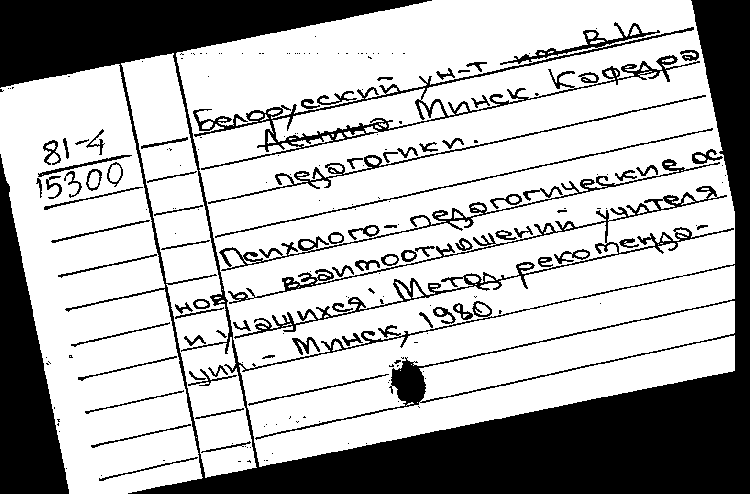 81-4
15300
Белорусский ун-т им. В.И.
Ленина. Минск. Кафедра
педагогики.
Психолого-педагогические ос-
новы взаимоотношений учителя
и учащихся: Метод. рекоменда-
ции. - Минск, 1980.